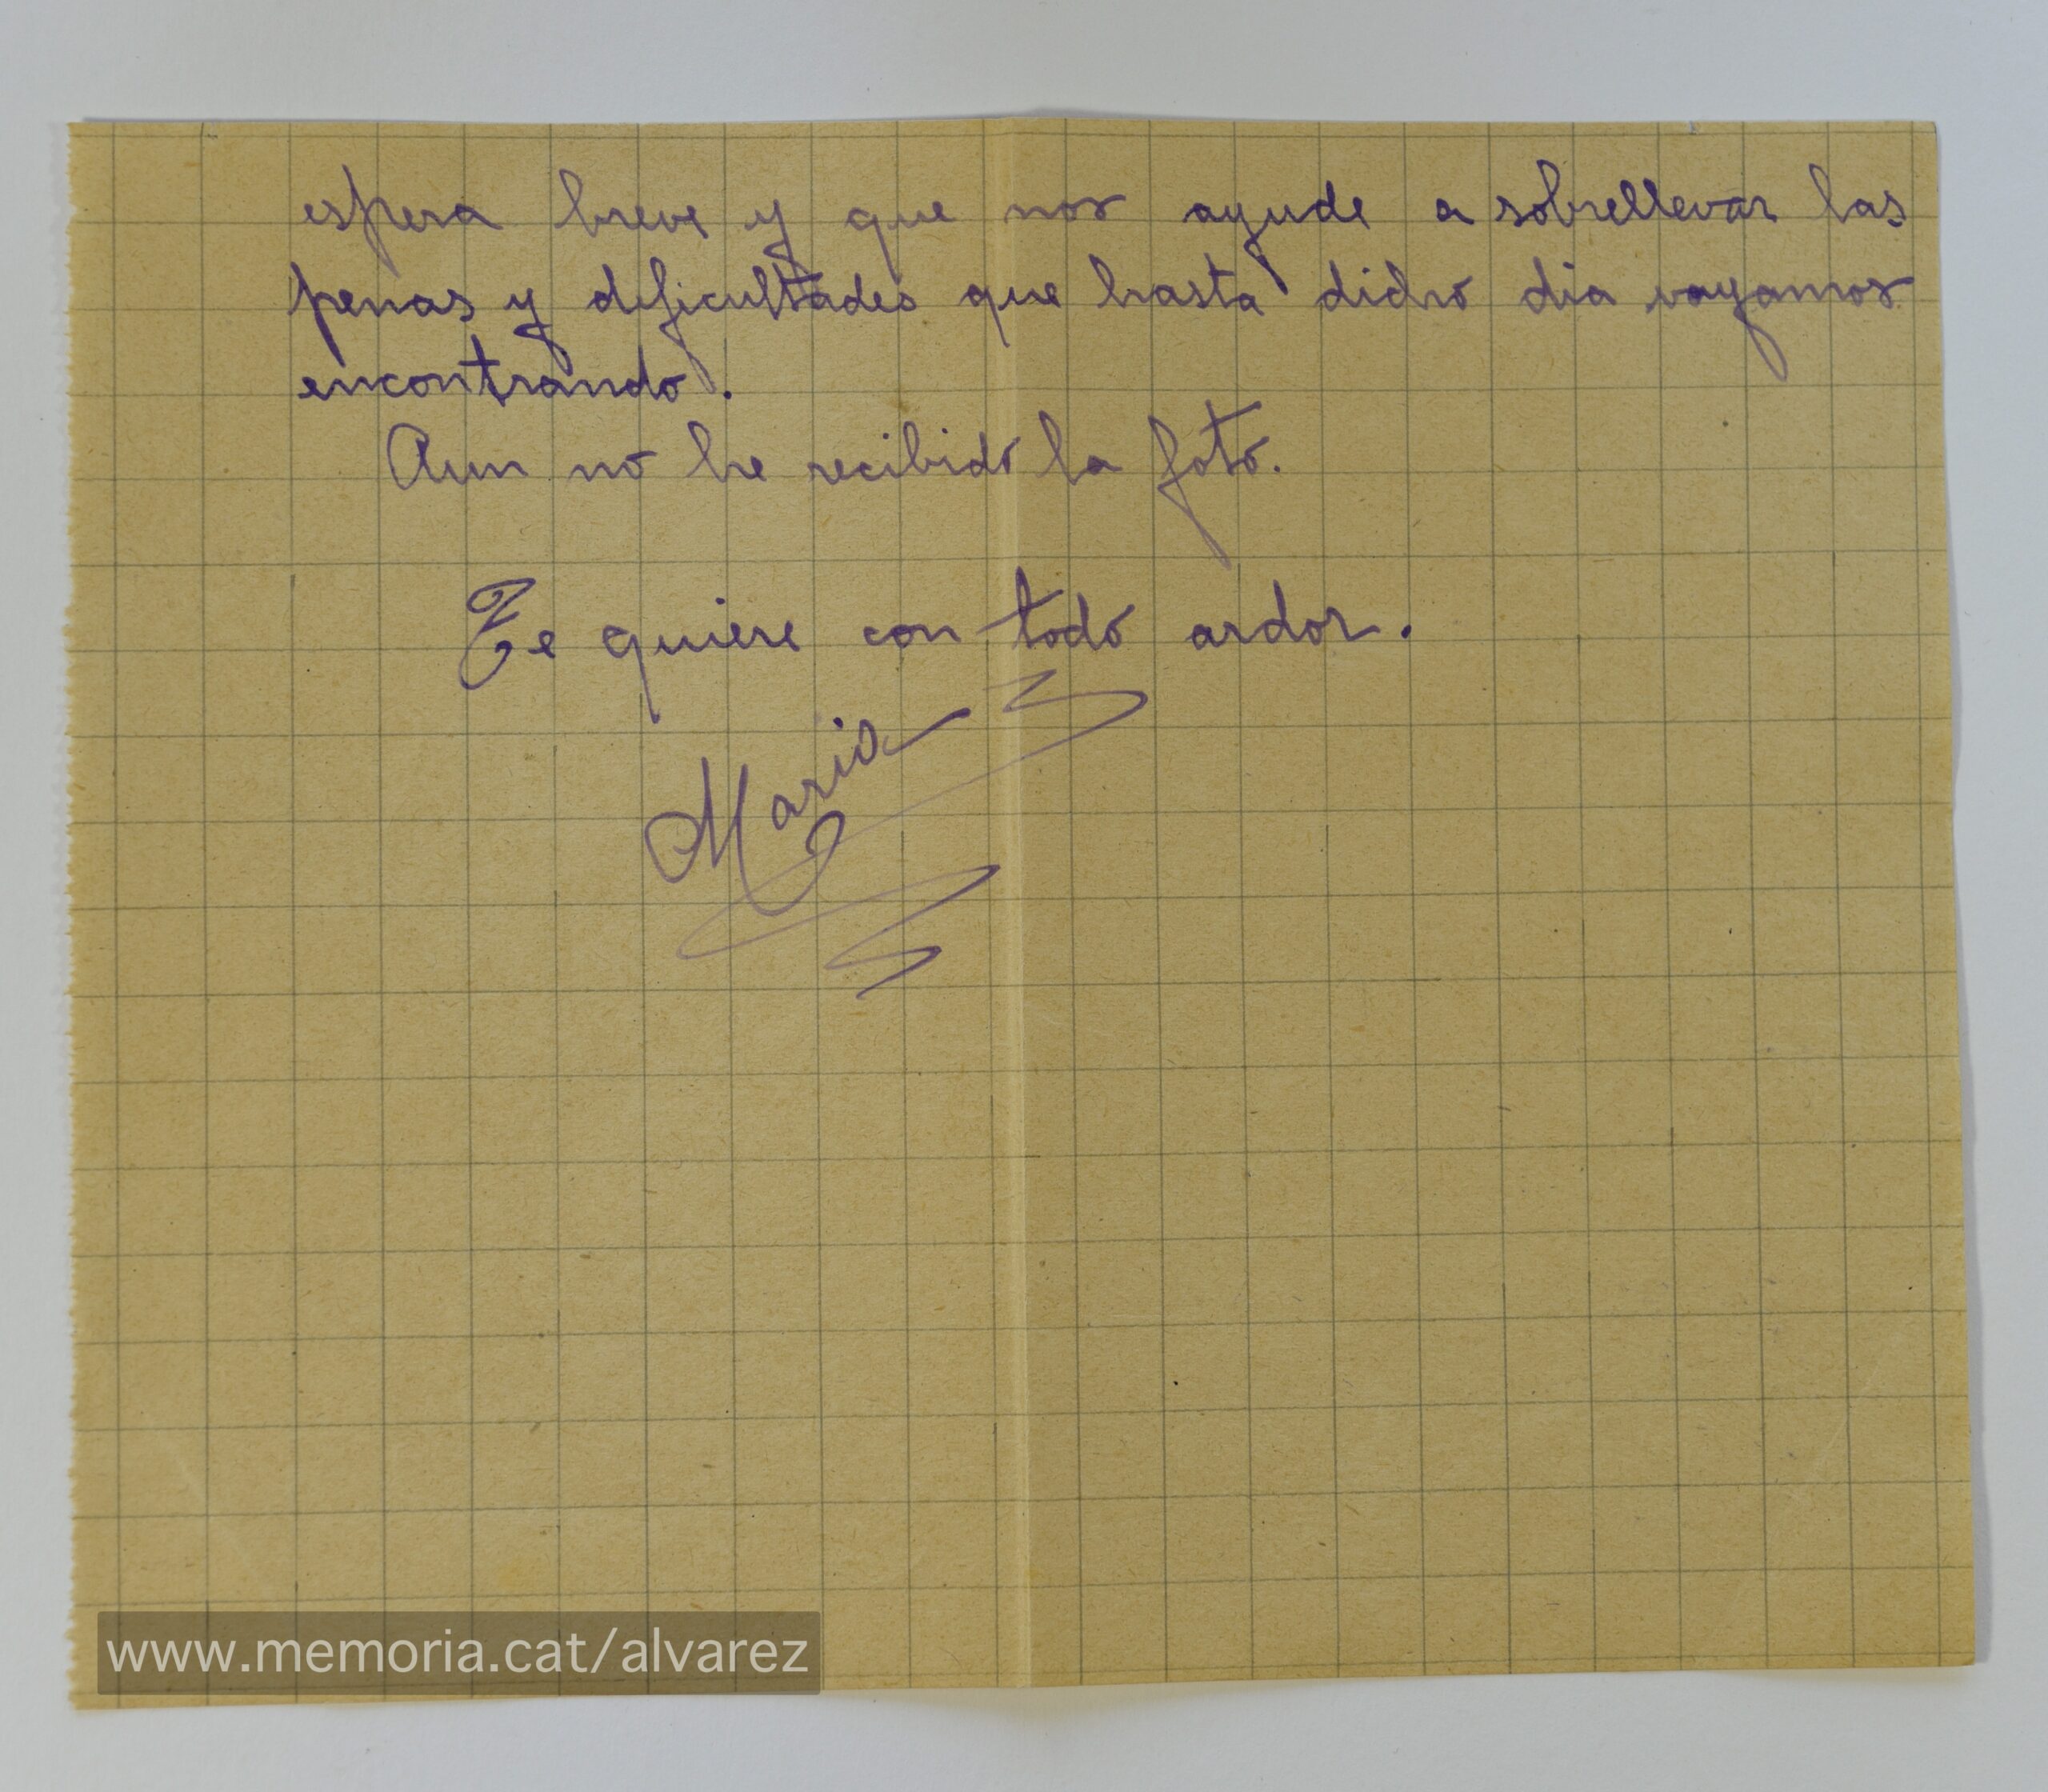 espera breve y que nos ayude a sobrellevar las
penas y dificultades que hasta dicho dia vayamos
encontrando.
Aun no he recibido la foto.
Te quiere con todo ardor.
Maria
www.memoria.cat/alvarez